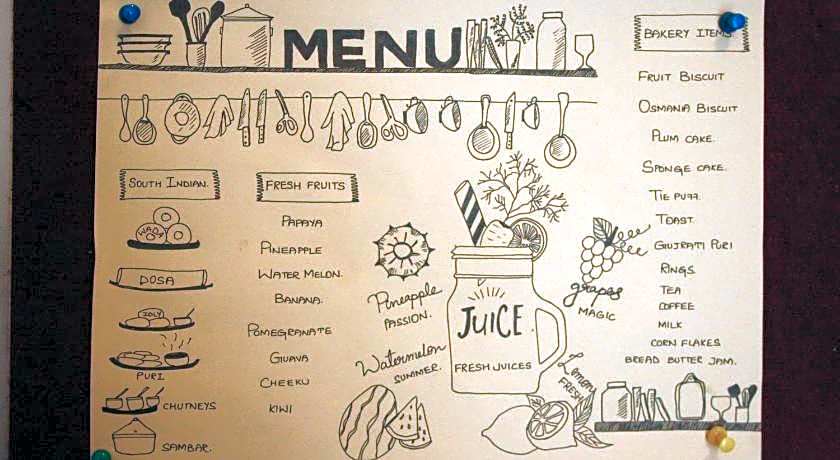 MENU
SOUTH INDIAN.
WADA
DOSA
IDLY
PURI
CHUTNEYS
SAMBAR.
FRESH FRUITS
PAPAYA
PINEAPPLE
WATER MELON.
BANANA.
POMEGRANATE
GUAVA
CHEEKU
KIWI
Pineapple
PASSION.
Watermelon
SUMMER.
JUICE.
FRESH JUICES
grapes
MAGIC
Lemon
FRESH
BAKERY ITEMS.
FRUIT BISCUIT
OSMANIA BISCUIT
PLUM CAKE.
SPONGE CAKE.
TIE PUFF.
TOAST.
GUJRATI PURI
RINGS.
TEA
COFFEE
MILK
CORN FLAKES
BREAD BUTTER JAM.